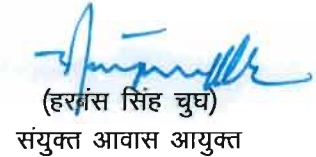 (हरबंस सिंह चुघ)
संयुक्त आवास आयुक्त